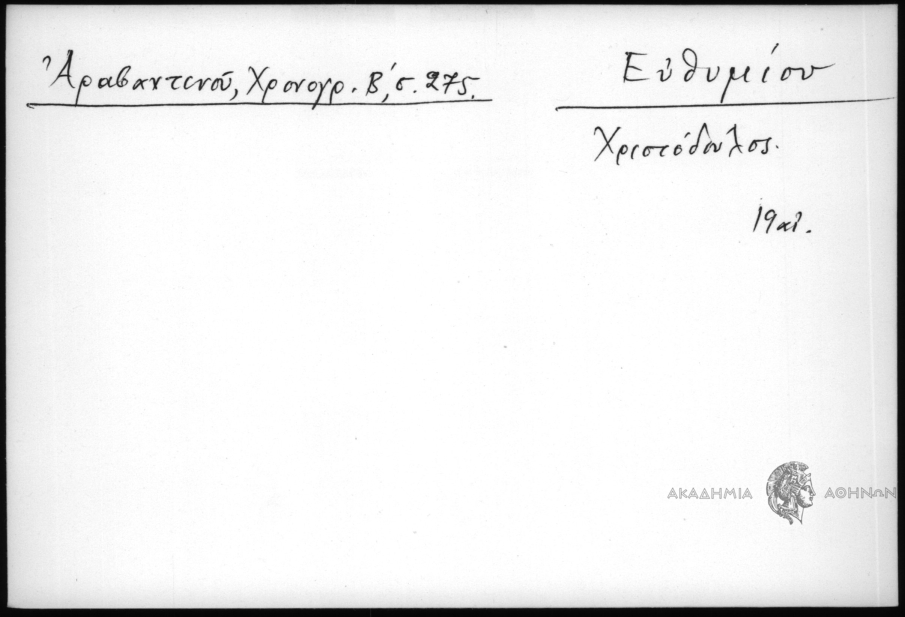 Ἀραβαντινοῦ, Χρονογρ. Β΄, σ. 275.
Εὐθυμίου
Χριστόδουλος.
19 αἰ.
ΑΚΑΔΗΜΙΑ ΑΘΗΝΩΝ